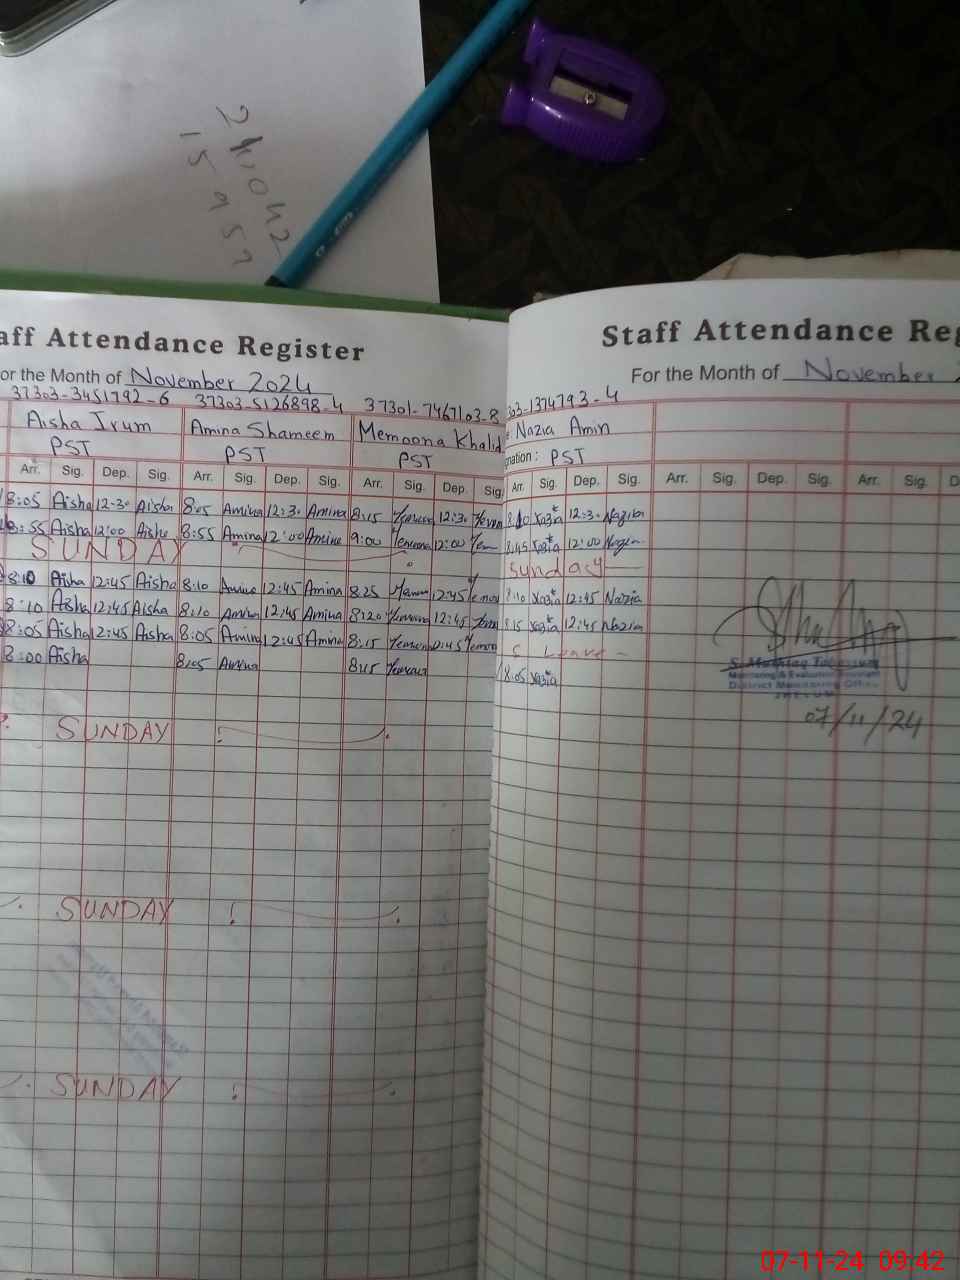 15957
aff Attendance Register
or the Month of November 2024
37303-3451792-6 37303-5126898-4 37301-7467103-8
Aisha Irum Amina Shameem Memoona Khalid
PST PST PST
Arr. Sig. Dep. Sig. Arr. Sig. Dep. Sig. Arr. Sig. Dep. Sig
8:05 Aisha 12:30 Aisha 8:05 Amina 12:30 Amina 8:15 12:30
8:55 Aisha 12:00 Aisha 8:55 Amina 12:00 Amina 9:00 12:00
SUNDAY
8:10 Aisha 12:45 Aisha 8:10 Amina 12:45 Amina 8:25 12:45
8:10 Aisha 12:45 Aisha 8:10 Amina 12:45 Amina 8:20 12:45
8:05 Aisha 12:45 Aisha 8:05 Amina 12:45 Amina 8:15 12:45
8:00 Aisha 8:05 Amina 8:15
SUNDAY
SUNDAY
SUNDAY
Staff Attendance Reg
For the Month of November 2
303-1374793-4
Nazia Amin
gnation: PST
Arr. Sig. Dep. Sig. Arr. Sig. Dep. Sig. Arr. Sig. D
8:10 Nazia 12:30 Nazia
8:45 Nazia 12:00
Sunday
8:10 Nazia 12:45 Nazia
8:15 Nazia 12:45 Nazia
Leave
8:05 Nazia
Monitoring & Evaluation Assistant
District Monitoring Office
07/11/24
07-11-24 09:42